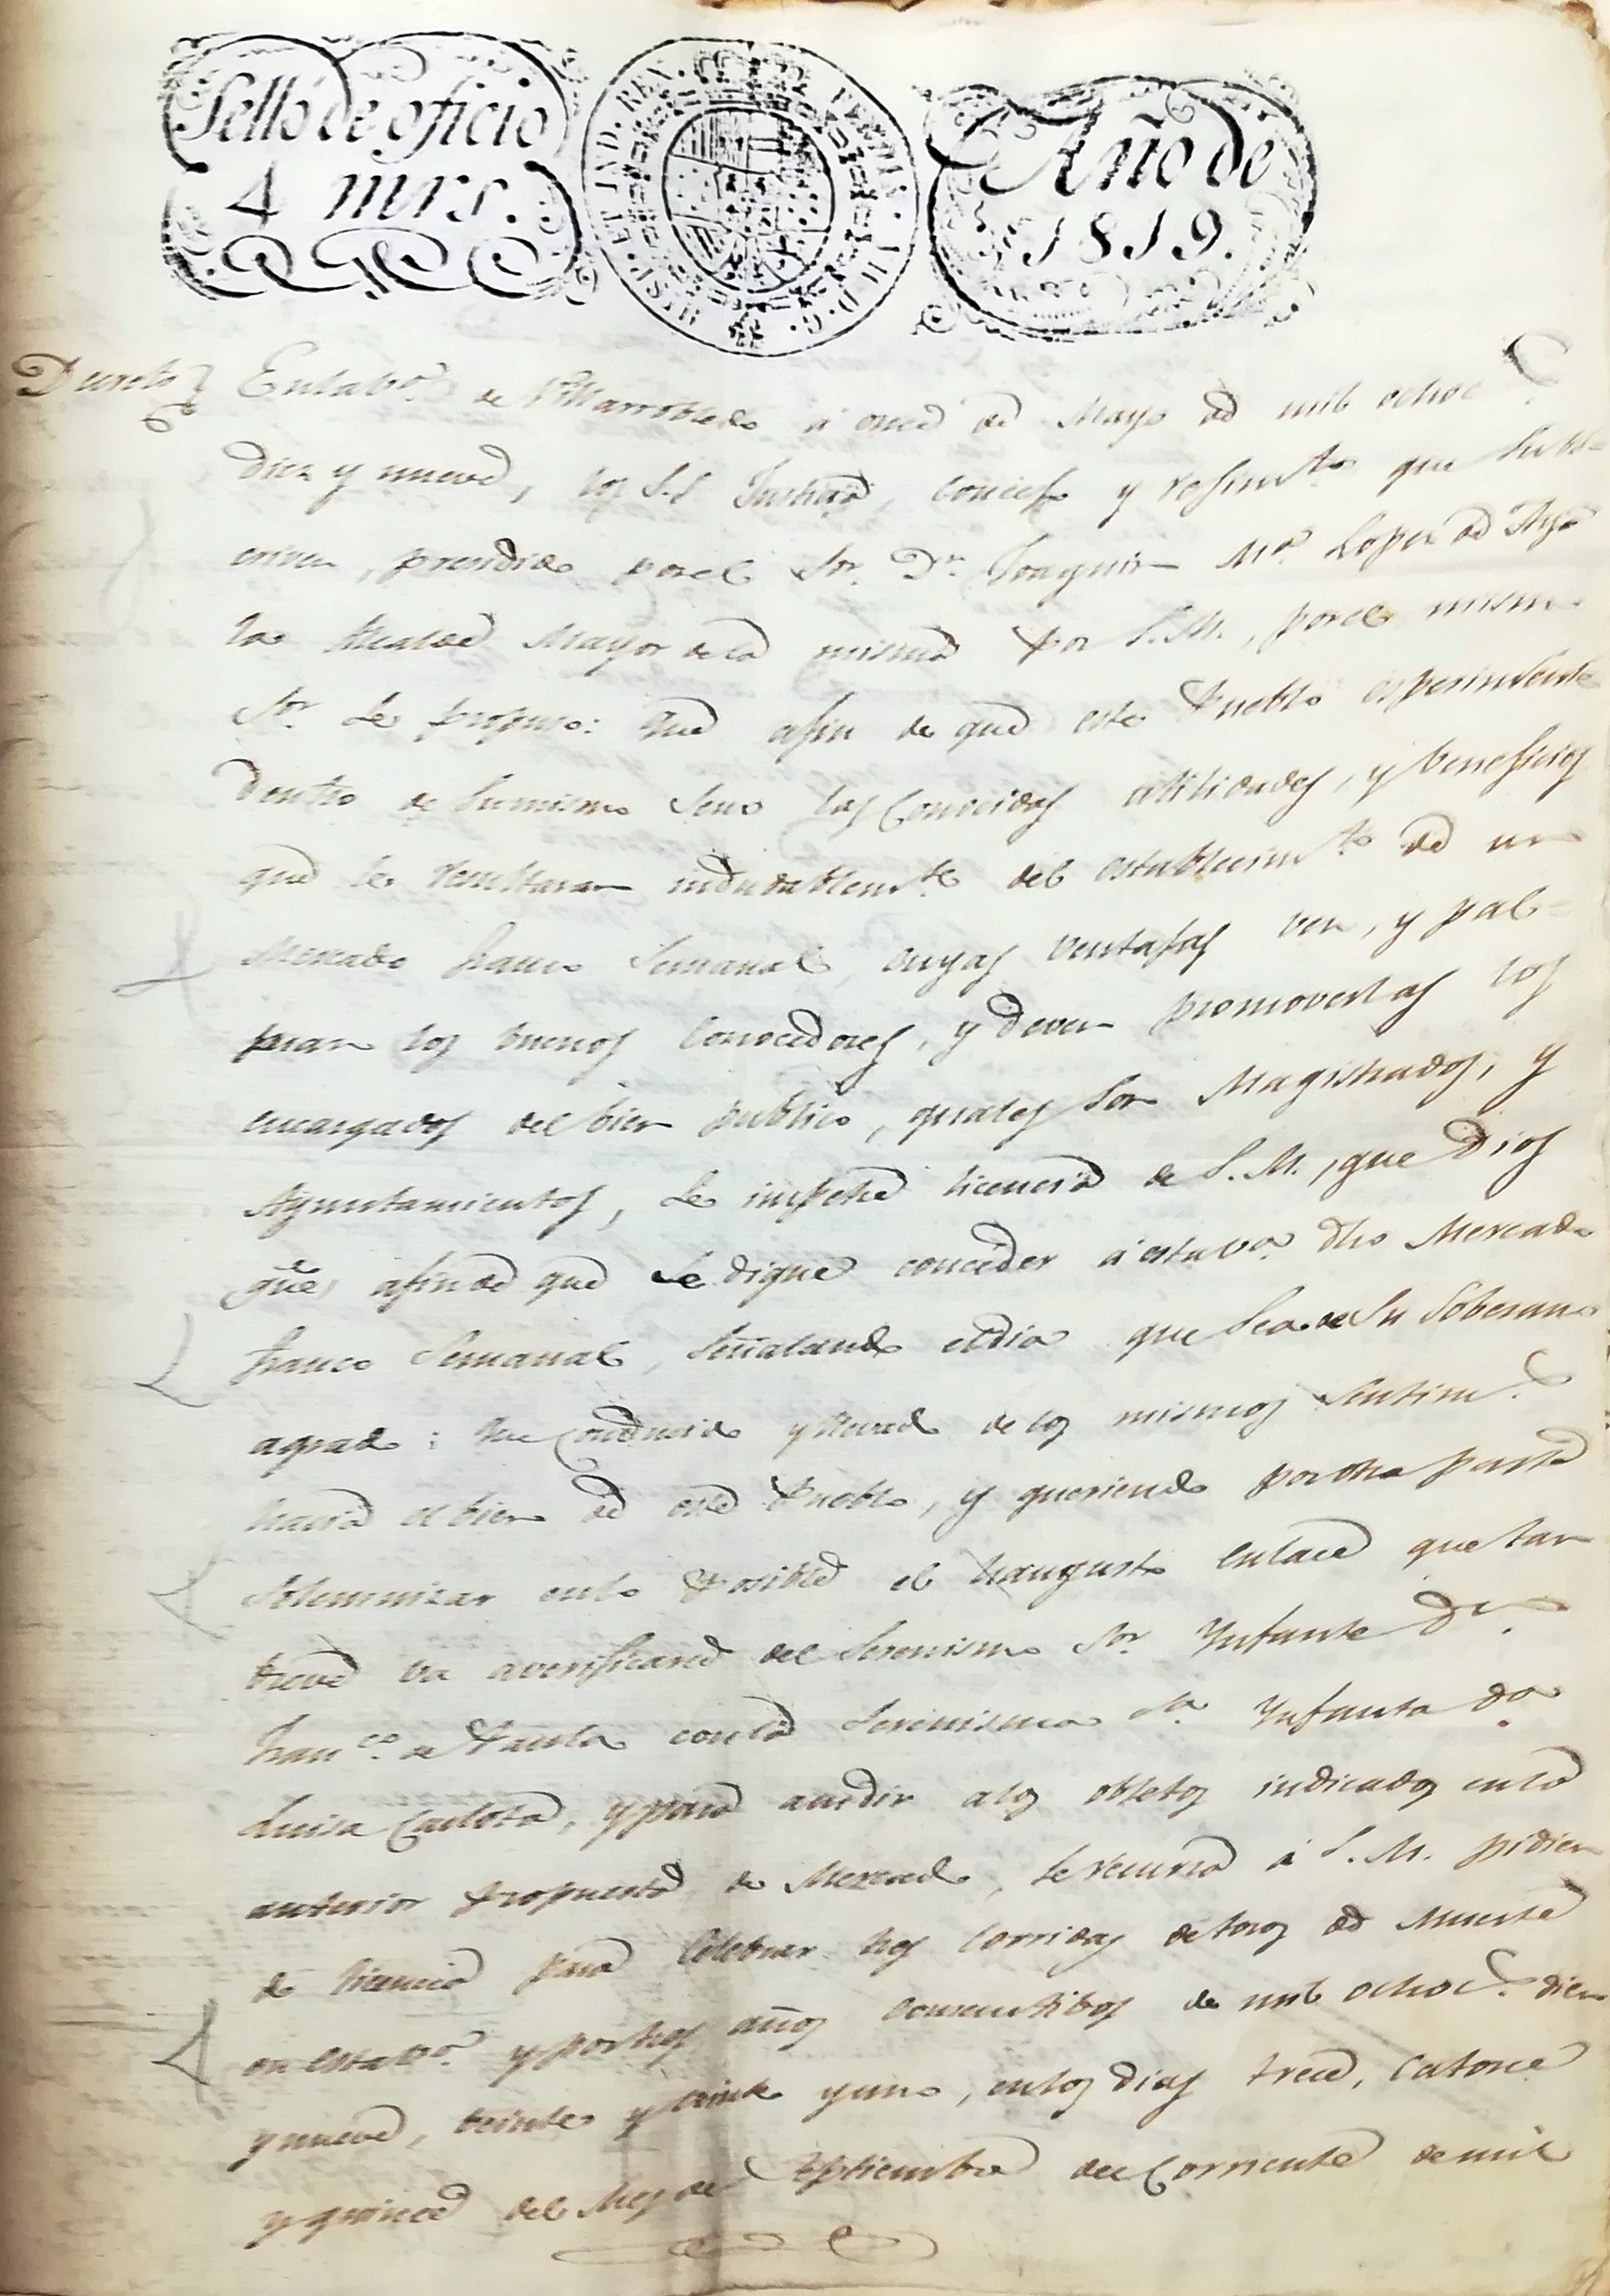 Sello de oficio
4 mrs.
HISP. ET IND. REX. FERDIN. VII. D. G.
Año de
1819.
Decreto
En la v.ª de Villarrobledo á once de Mayo de mil ochoc.s
diez y nueve, los S.S. Justicia, Concejo y rejim.to que subs-
criven, presidido por el Sor. Dn. Joaquin M.ª Lopez de
Alcalde Mayor de la misma por S.M., por el mismo
Sor. se propuso: Que afin de que este Pueblo esperimente
dentro de su mismo seno las conocidas utilidades, y beneficios
que le resultaran indudablem.te del establecim.to de un
Mercado franco Semanal, cuyas ventajas ven, y pal-
pan los buenos conocedores, y deven promoverlas los
encargados del bien publico, quales son Magistrados, y
Ayuntamientos, se impetre licencia de S.M., que Dios
gue, afin de que se digne conceder á esta v.ª dho Mercado
franco Semanal, señalando el dia que sea de su Soberano
agrado: Que conducido y llevado de los mismos sentim.s
hacia el bien de este Pueblo, y queriendo por otra parte
solemnizar en lo posible el augusto enlace que tan
breve va a verificarse del Serenismo Sor. Ynfante Dn.
Fran.co de Paula con la Serenisma Sra. Ynfanta D.ª
Luisa Carlota, y para acudir a los obletos indicados en la
anterior propuesta de Mercado, se recurra á S.M. pidien
do licencia para Celebrar tres Corridas de toros de Muerte
en esta v.ª y por tres años consecutibos de mil ochoc.s diez
y nueve, veinte y veinte y uno, en los dias trece, catorce
y quince del Mes de Septiembre del Corriente de mil